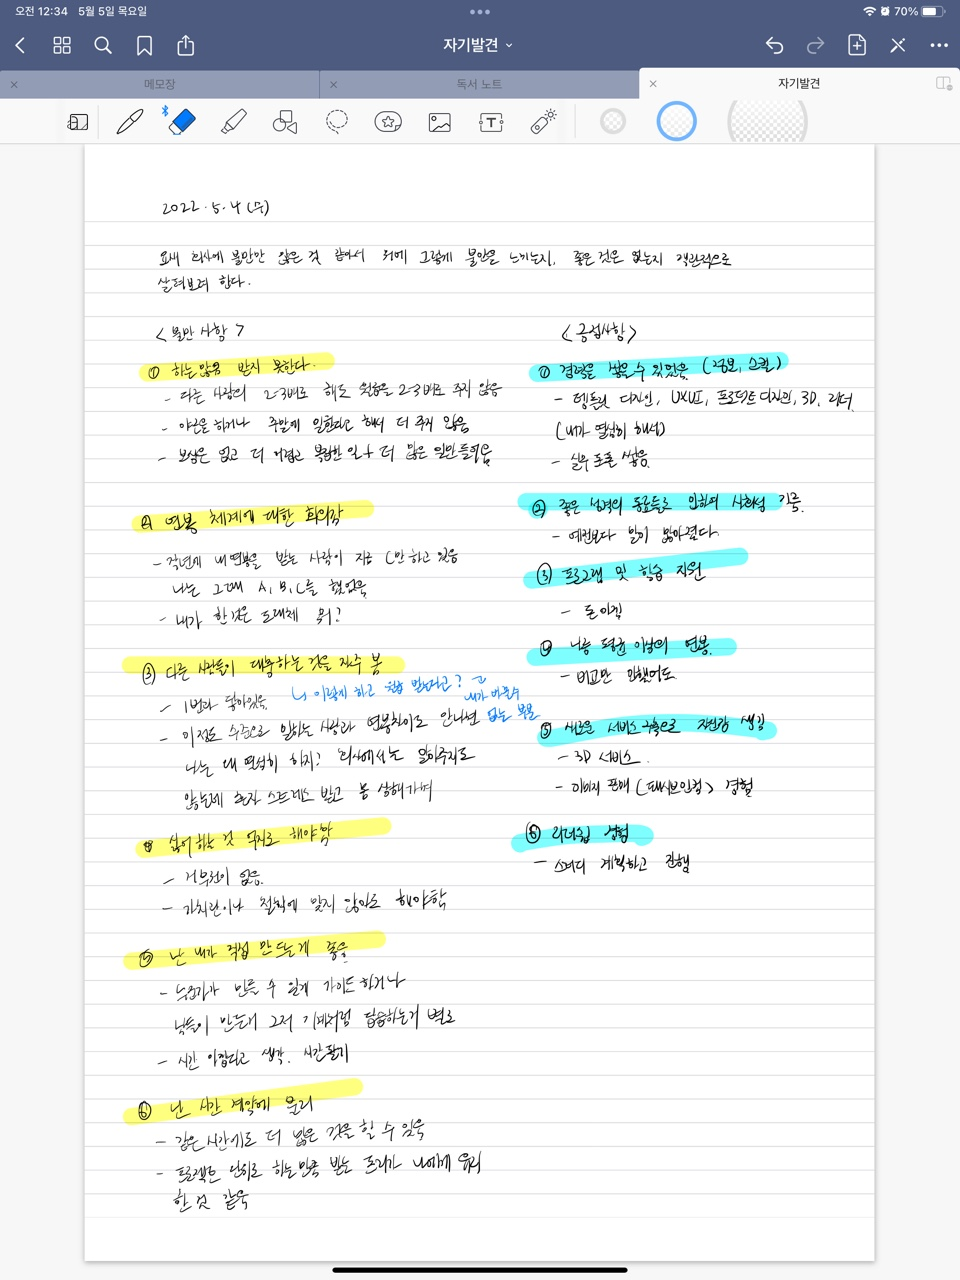 오전 12:34 5월 5일 목요일
70%
자기발견
메모장
독서 노트
자기발견
2022. 5. 4 (수)
요새 회사에 불만만 많은 것 같아서 왜 그렇게 불만을 느끼는지, 좋은 것은 없는지 객관적으로
살펴보려 한다.
<불만 사항>
① 하는 만큼 받지 못한다.
- 다른 사람의 2-3배로 해도 월급을 2-3배로 주지 않음
- 야근을 하거나 주말에 일한다고 해서 더 주지 않음
- 보상은 없고 더 어렵고 복잡한 일 + 더 많은 일만 들어옴
② 연봉 체계에 대한 회의감
- 작년에 내 연봉을 받는 사람이 지금 C만 하고 있음
나는 그때 A, B, C를 했었음
- 내가 한 것은 도대체 뭐?
③ 다른 사람들이 대충하는 것을 자주 봄
- 1번과 닿아있음
↳ 이렇게 하고 월급 받는다고? → 내가 바꿀 수
없는 부분
- 이정도 수준으로 일하는 사람과 연봉차이도 안나면
나는 왜 열심히 하지? 회사에서는 알아주지도
않는데 혼자 스트레스 받고 몸 상해가며
④ 싫어하는 것 억지로 해야함
- 거부권이 없음
- 가치관이나 철학에 맞지 않아도 해야함
⑤ 난 내가 직접 만드는게 좋음
- 누군가가 만들 수 있게 가이드 하거나
남들이 만든대 그저 기계처럼 답습하는거 별로
- 시간 아깝다고 생각. 시간팔기
⑥ 난 시간 계약에 불리
- 같은 시간에도 더 많은 것을 할 수 있음
- 프로젝트 단위로 하는만큼 받는 프리가 나에게 유리
한 것 같음
<긍정사항>
① 경력을 쌓을 수 있었음 (정보, 스킬)
- 템플릿 디자인, UXUI, 프로덕트 디자인, 3D, 리더
(내가 열심히 해서)
- 실무 포폴 쌓음
② 좋은 성격의 동료들로 인하여 사회성 기름
- 예전보다 말이 많아졌다
③ 프로그램 및 학습 지원
- 돈 아낌
④ 나름 평균 이상의 연봉
- 비교만 안했어도
⑤ 새로운 서비스 구축으로 자신감 생김
- 3D 서비스
- 이미지 판매 (패시브인컴) 경험
⑥ 리더쉽 경험
- 스터디 계획하고 진행